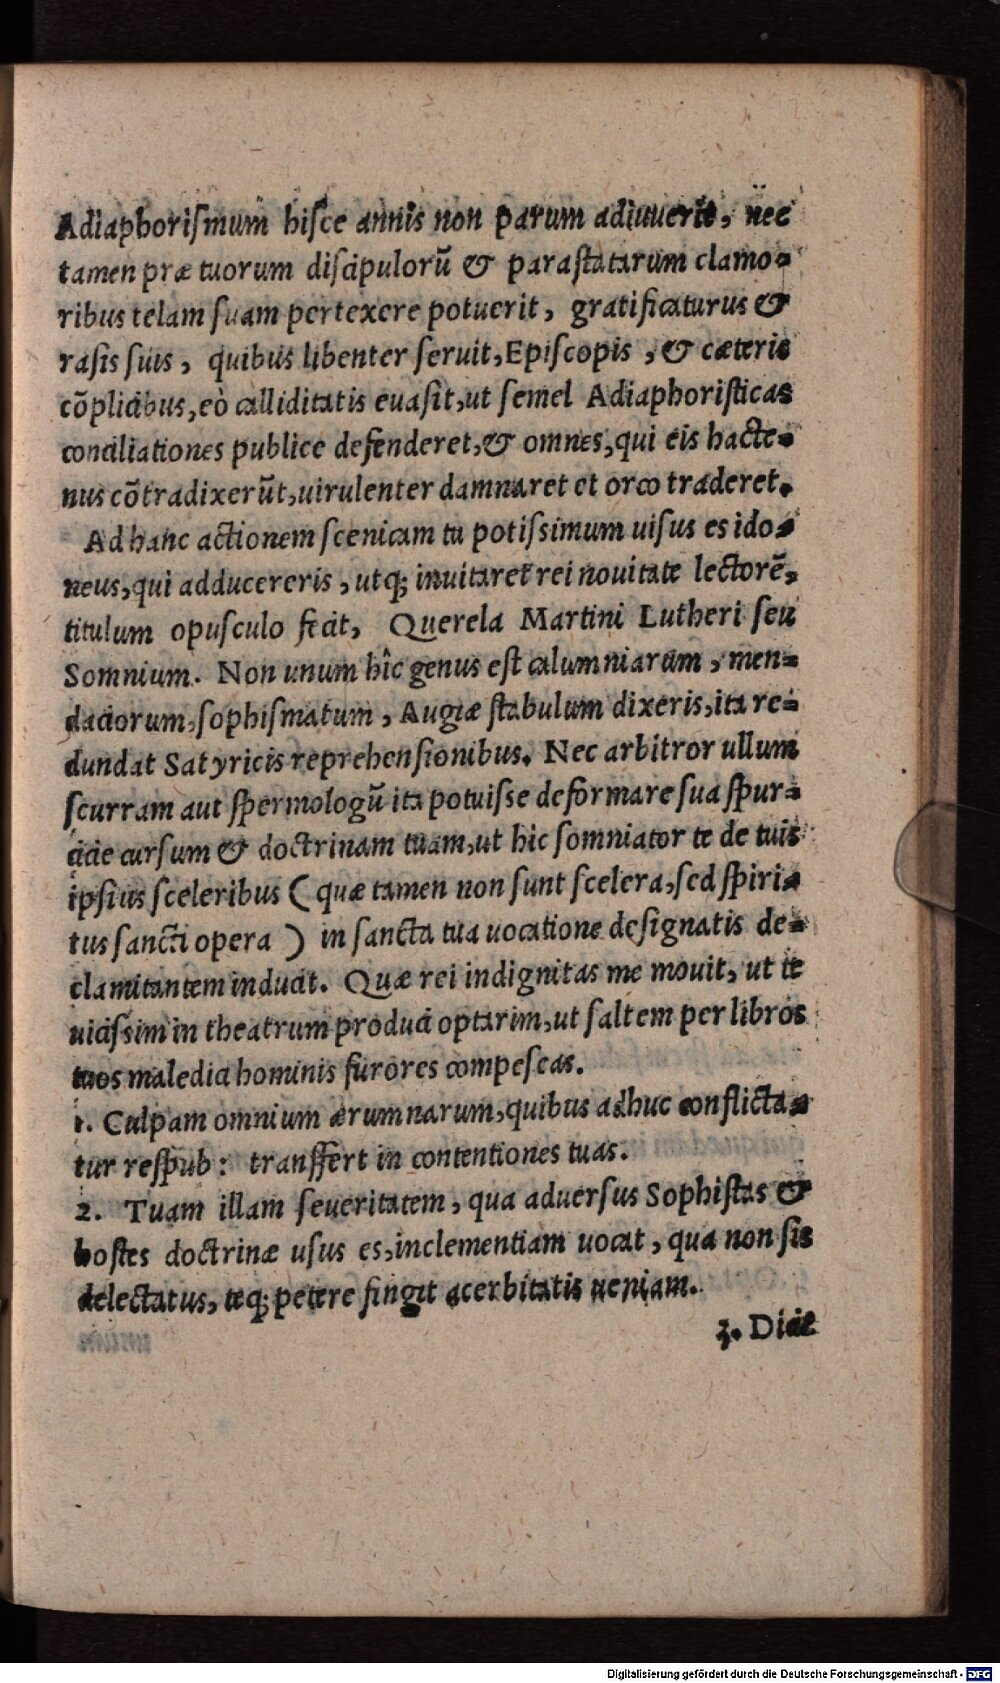 Adiaphoriſmum hiſce annis non parum adiuuerit, nec
tamen præ tuorum diſcipulorũ & paraſtatarum clamo-
ribus telam ſuam pertexere potuerit, gratificaturus &
raſis ſuis, quibus libenter ſeruit, Epiſcopis, & cæteris
cõplicibus, eò calliditatis euaſit, ut ſemel Adiaphoriſticas
conciliationes publice defenderet, & omnes, qui eis hacte-
nus cõtradixerũt, uirulenter damnaret et orco traderet.
Ad hanc actionem ſcenicam tu potiſsimum uiſus es ido-
neus, qui adducereris, utq; inuitaret rei nouitate lectorẽ,
titulum opuſculo fecit, Querela Martini Lutheri ſeu
Somnium. Non unum hîc genus eſt calumniarum, men-
daciorum, ſophiſmatum, Augiæ ſtabulum dixeris, ita re-
dundat Satyricis reprehenſionibus. Nec arbitror ullum
ſcurram aut ſpermologũ ita potuiſse deformare ſua ſpur-
citie curſum & doctrinam tuam, ut hic ſomniator te de tuis
ipſius ſceleribus ( quæ tamen non ſunt ſcelera, ſed ſpiri-
tus ſancti opera ) in ſancta tua uocatione deſignatis de-
clamitantem inducit. Quæ rei indignitas me mouit, ut te
uiciſsim in theatrum produci optarim, ut ſaltem per libros
tuos maledici hominis furores compeſcas.
1. Culpam omnium ærumnarum, quibus adhuc conflicta-
tur reſpub: tranſfert in contentiones tuas.
2. Tuam illam ſeueritatem, qua aduerſus Sophiſtas &
hoſtes doctrinæ uſus es, inclementiam uocat, qua non ſis
delectatus, teq; petere fingit acerbitatis ueniam.
3. Dicit
Digitalisierung gefördert durch die Deutsche Forschungsgemeinschaft - DFG